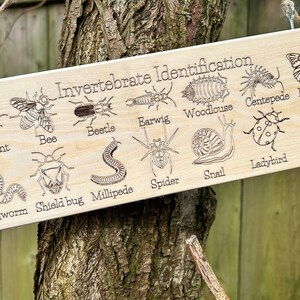 Invertebrate Identification
Bee Beetle Earwig Woodlouse Centepede
Shield bug Millipede Spider Snail Ladybird